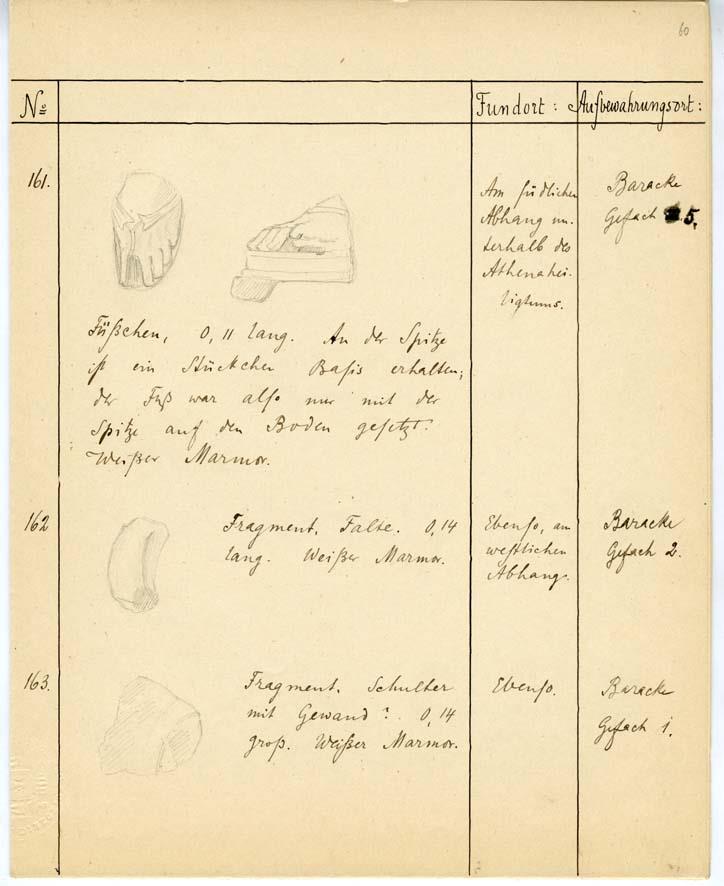 60
No Fundort: Aufbewahrungsort:
161.
Füßchen, 0,11 lang. An der Spitze
ist ein Stückchen Basis erhalten;
der Fuß war also nur mit der
Spitze auf den Boden gesetzt.
Weißer Marmor.
Am südlichen
Abhang un-
terhalb des
Athenahei-
ligtums.
Baracke
Gefach 5.
162
Fragment. Falte. 0,14
lang. Weißer Marmor.
Ebenso, am
westlichen
Abhang.
Baracke
Gefach 2.
163.
Fragment. Schulter
mit Gewand? 0,14
groß. Weißer Marmor.
Ebenso.
Baracke
Gefach 1.